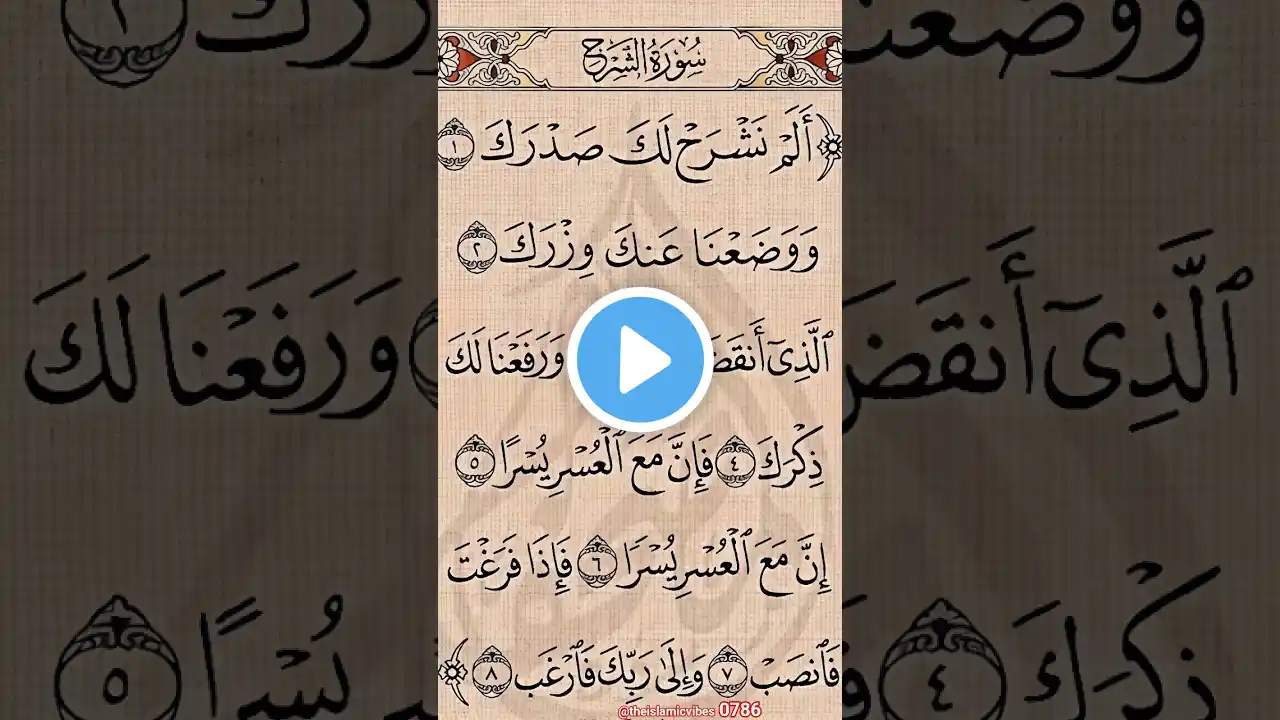 سُورَةُ الشَّرْحِ
﴿أَلَمْ نَشْرَحْ لَكَ صَدْرَكَ ١
وَوَضَعْنَا عَنكَ وِزْرَكَ ٢
ٱلَّذِىٓ أَنقَضَ وَرَفَعْنَا لَكَ
ذِكْرَكَ ٤ فَإِنَّ مَعَ ٱلْعُسْرِ يُسْرًا ٥
إِنَّ مَعَ ٱلْعُسْرِ يُسْرًا ٦ فَإِذَا فَرَغْتَ
فَٱنصَبْ ٧ وَإِلَىٰ رَبِّكَ فَٱرْغَب ٨﴾
@theislamicvibes 0786